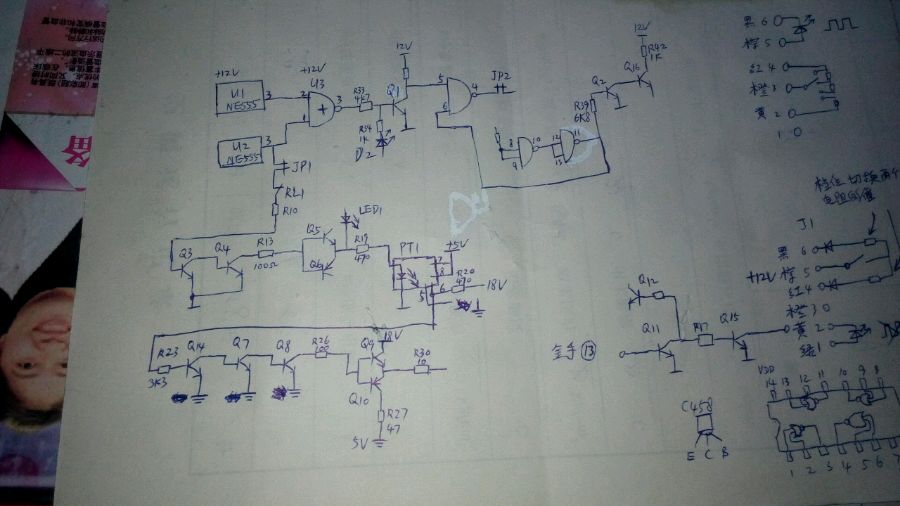 +12V
U1
NE555
3
U2
NE555
3
+12V
U3
2
1
3
R33
467
Q1
12V
R34
1K
D2
5
6
4
JP2
JP1
RL1
R10
8
9
10
12
13
11
R39
6K8
Q2
Q16
12V
R42
1K
Q3
Q4
R13
100Ω
Q5
Q6
LED1
R19
470
PT1
+5V
7
8
6
5
R20
490
18V
R23
3K3
Q14
Q7
Q8
R26
100
Q9
18V
Q10
R30
10
R27
47
5V
黑6
棕5
红4
橙3
黄2
1
档位切换两个
电阻的值
J1
黑6
+12V
棕5
红4
橙3
黄2
绿1
Q12
Q11
R17
Q15
⑬
C458
E C B
VDD
14 13 12 11 10 9 8
1 2 3 4 5 6 7